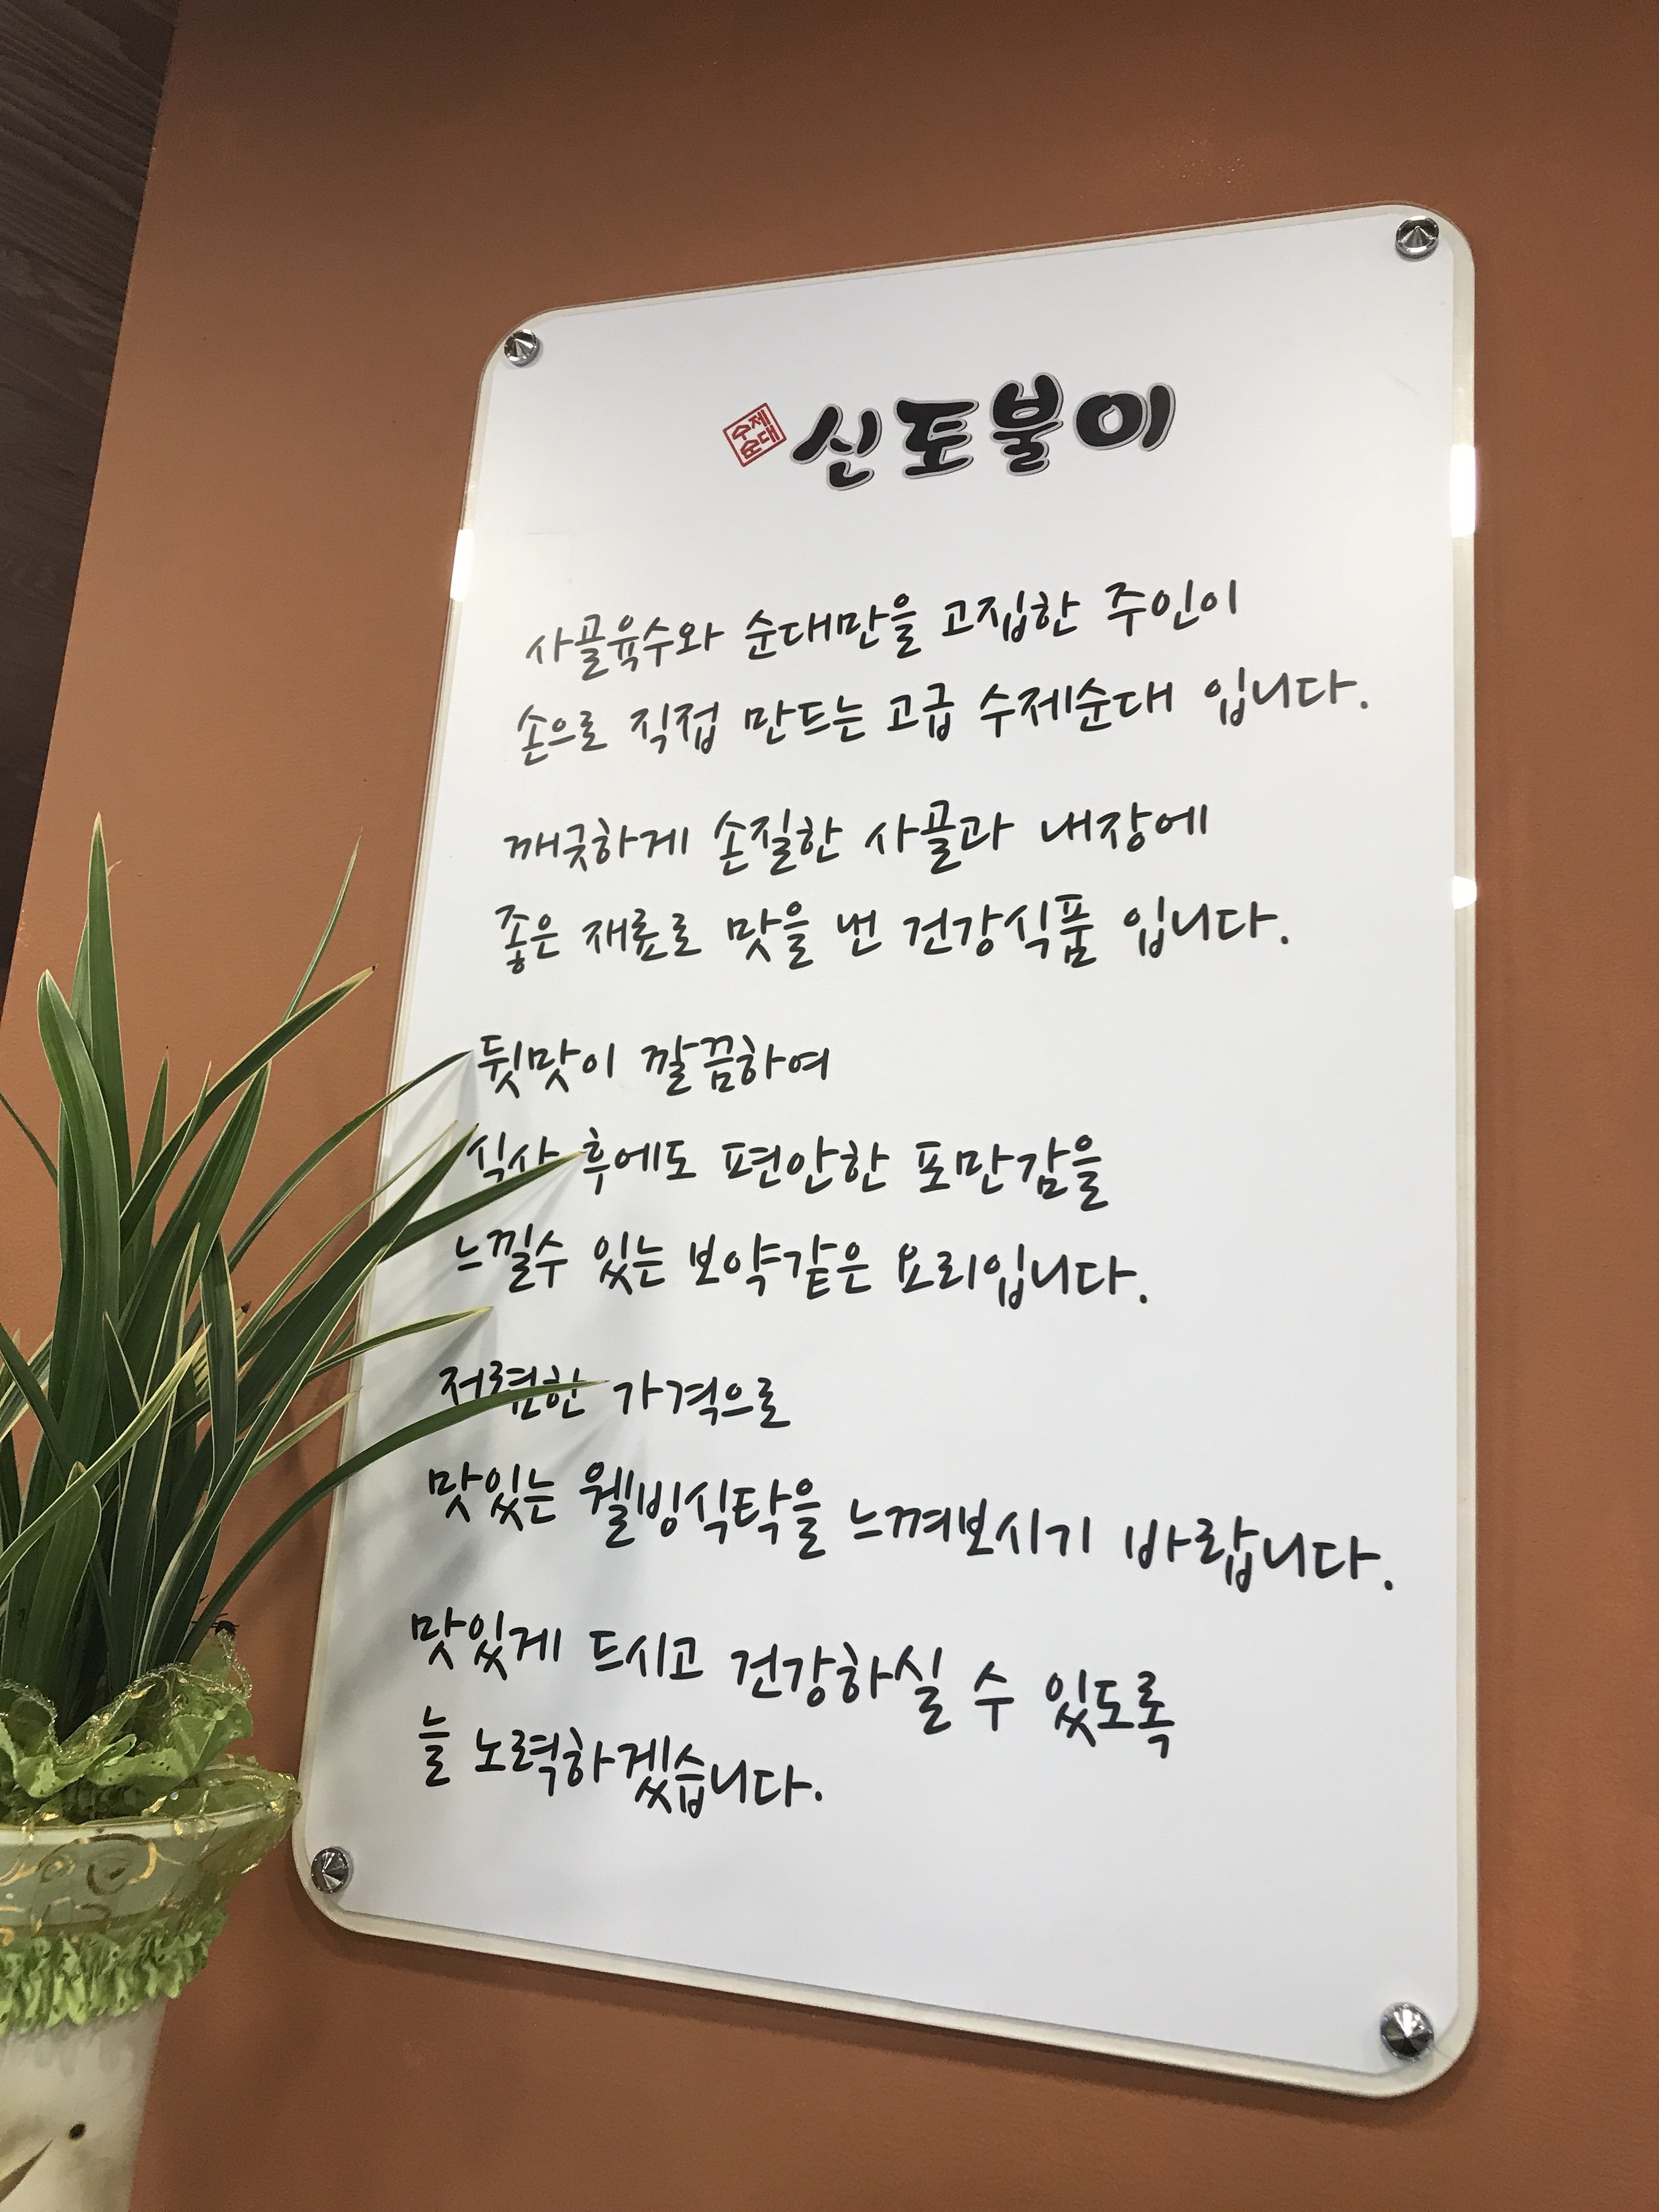 수제
순대
신토불이
사골육수와 순대만을 고집한 주인이
손으로 직접 만드는 고급 수제순대 입니다.
깨긋하게 손질한 사골과 내장에
좋은 재료로 맛을 낸 건강식품 입니다.
뒷맛이 깔끔하여
식사 후에도 편안한 포만감을
느낄수 있는 보약같은 요리입니다.
저렴한 가격으로
맛있는 웰빙식탁을 느껴보시기 바랍니다.
맛있게 드시고 건강하실 수 있도록
늘 노력하겠습니다.